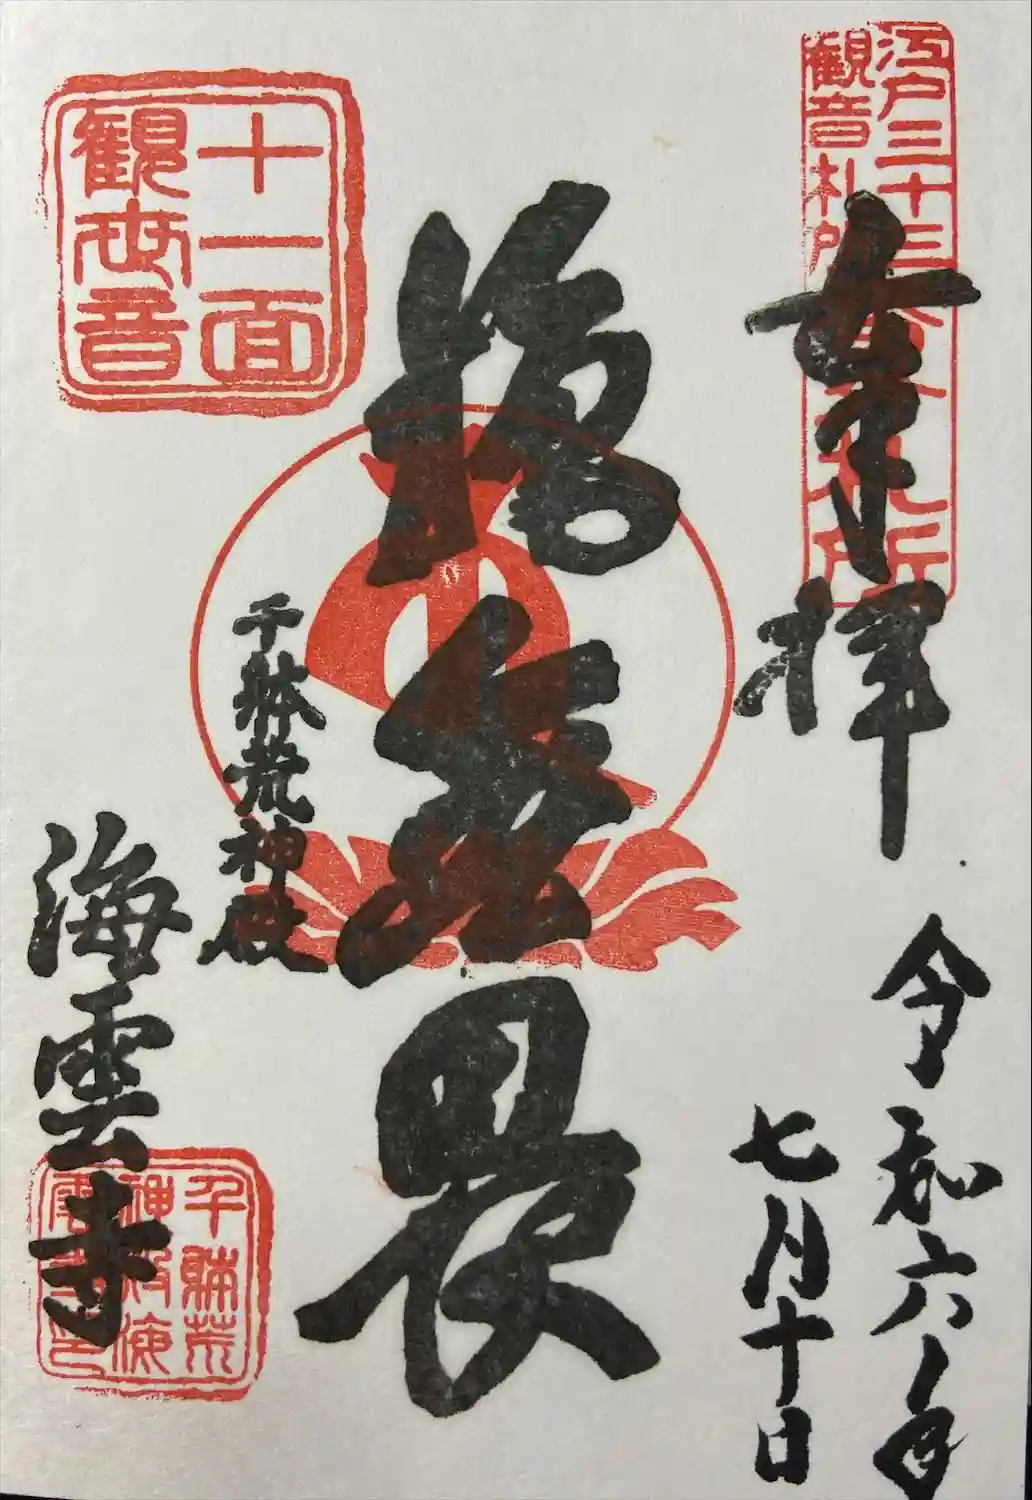 江戸三十三
観音札所
奉拝
令和六年
七月十日
十一面
観世音
施無畏
千躰荒神殿
海雲寺
千躰荒
神殿海
雲寺印